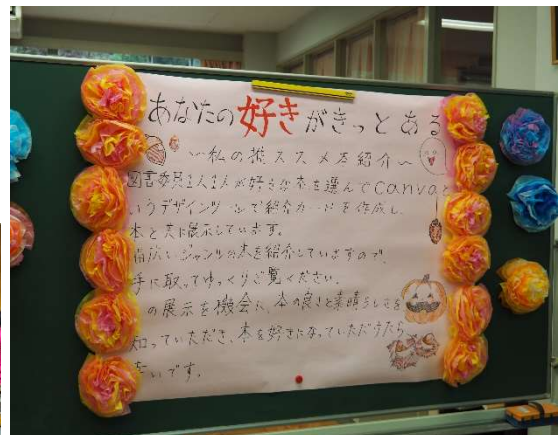 あなたの好きがきっとある
～私の推ススメ本紹介～
図書委員1人1人が好きな本を選んでCanvaと
いうデザインツールで紹介カードを作成し、
本と共に展示しています。
幅広いジャンルの本を紹介していますので、
手に取ってゆっくりご覧ください。
の展示を機会に、本の良さと素晴らしさを
知っていただき、本を好きになっていただけたら
幸いです。